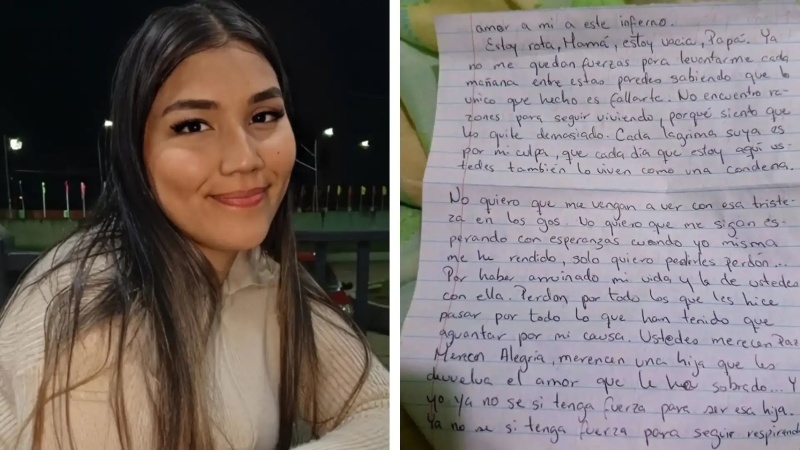 amor a mi a este infierno.
Estoy rota, Mamá, estoy vacia, Papá. Ya
no me quedan fuerzas para levantarme cada
mañana entre estas paredes sabiendo que lo
unico que hecho es fallarte. No encuentro ra-
zones para seguir viviendo, porque siento que
lo quite demasiado. Cada lagrima suya es
por mi culpa, que cada día que estoy aquí us-
tedes también lo viven como una condena.
No quiero que me vengan a ver con esa triste-
za en los ojos. No quiero que me sigan es-
perando con esperanzas cuando yo misma
me he rendido, solo quiero pedirles perdón...
Por haber arruinado mi vida y la de ustedes
con ella. Perdon por todo los que les hice
pasar por todo lo que han tenido que
aguantar por mi causa. Ustedes merecen Paz
Merecen Alegria, merencen una hija que les
devuelva el amor que le ha sobrado... Y
yo ya no se si tenga fuerza para ser esa hija.
Ya no se si tenga fuerza para seguir respirando